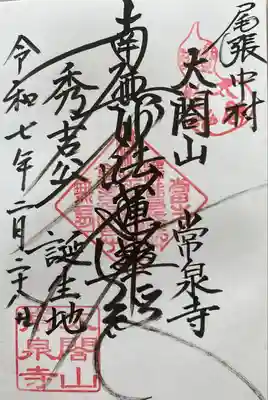 尾張中村
太閤山 常泉寺
南無妙法蓮華経
秀吉公 誕生地
令和七年二月二十八日
太閤山
常泉寺